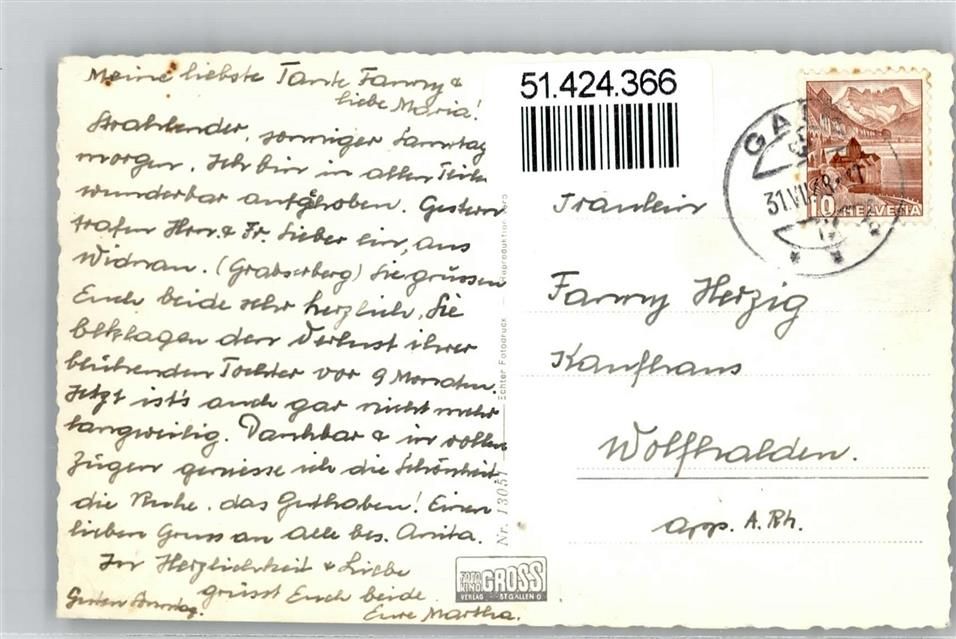 Meine liebste Tante Fanny &
liebe Maria!
Strahlender, sonniger Samstag
morgen. Ich bin in allen Teilen
wunderbar aufgehoben. Gestern
trafen Hrn. & Fr. Sieber ein, aus
Widnau. (Grabserberg) Sie grüssen
Euch beide sehr herzlich. Sie
beklagen den Verlust ihrer
blühenden Tochter vor 9 Monaten.
Jetzt ist's auch gar nicht mehr
langweilig. Dankbar & in vollen
Zügen geniesse ich die Schönheit
die Ruhe, das Guthaben! Einen
lieben Gruss an alle bes. Anita.
In Herzlichkeit & Liebe
grüsst Euch beide
Eure Martha.
Guten Sonntag.
51.424.366
31.VII.48
10 HELVETIA
Fräulein
Fanny Herzig
Kaufhaus
Wolfhalden.
App. A. Rh.
Nr. 13051
Echter Fotodruck
Reproduktion
FOTO GROSS
VERLAG ST GALLEN O